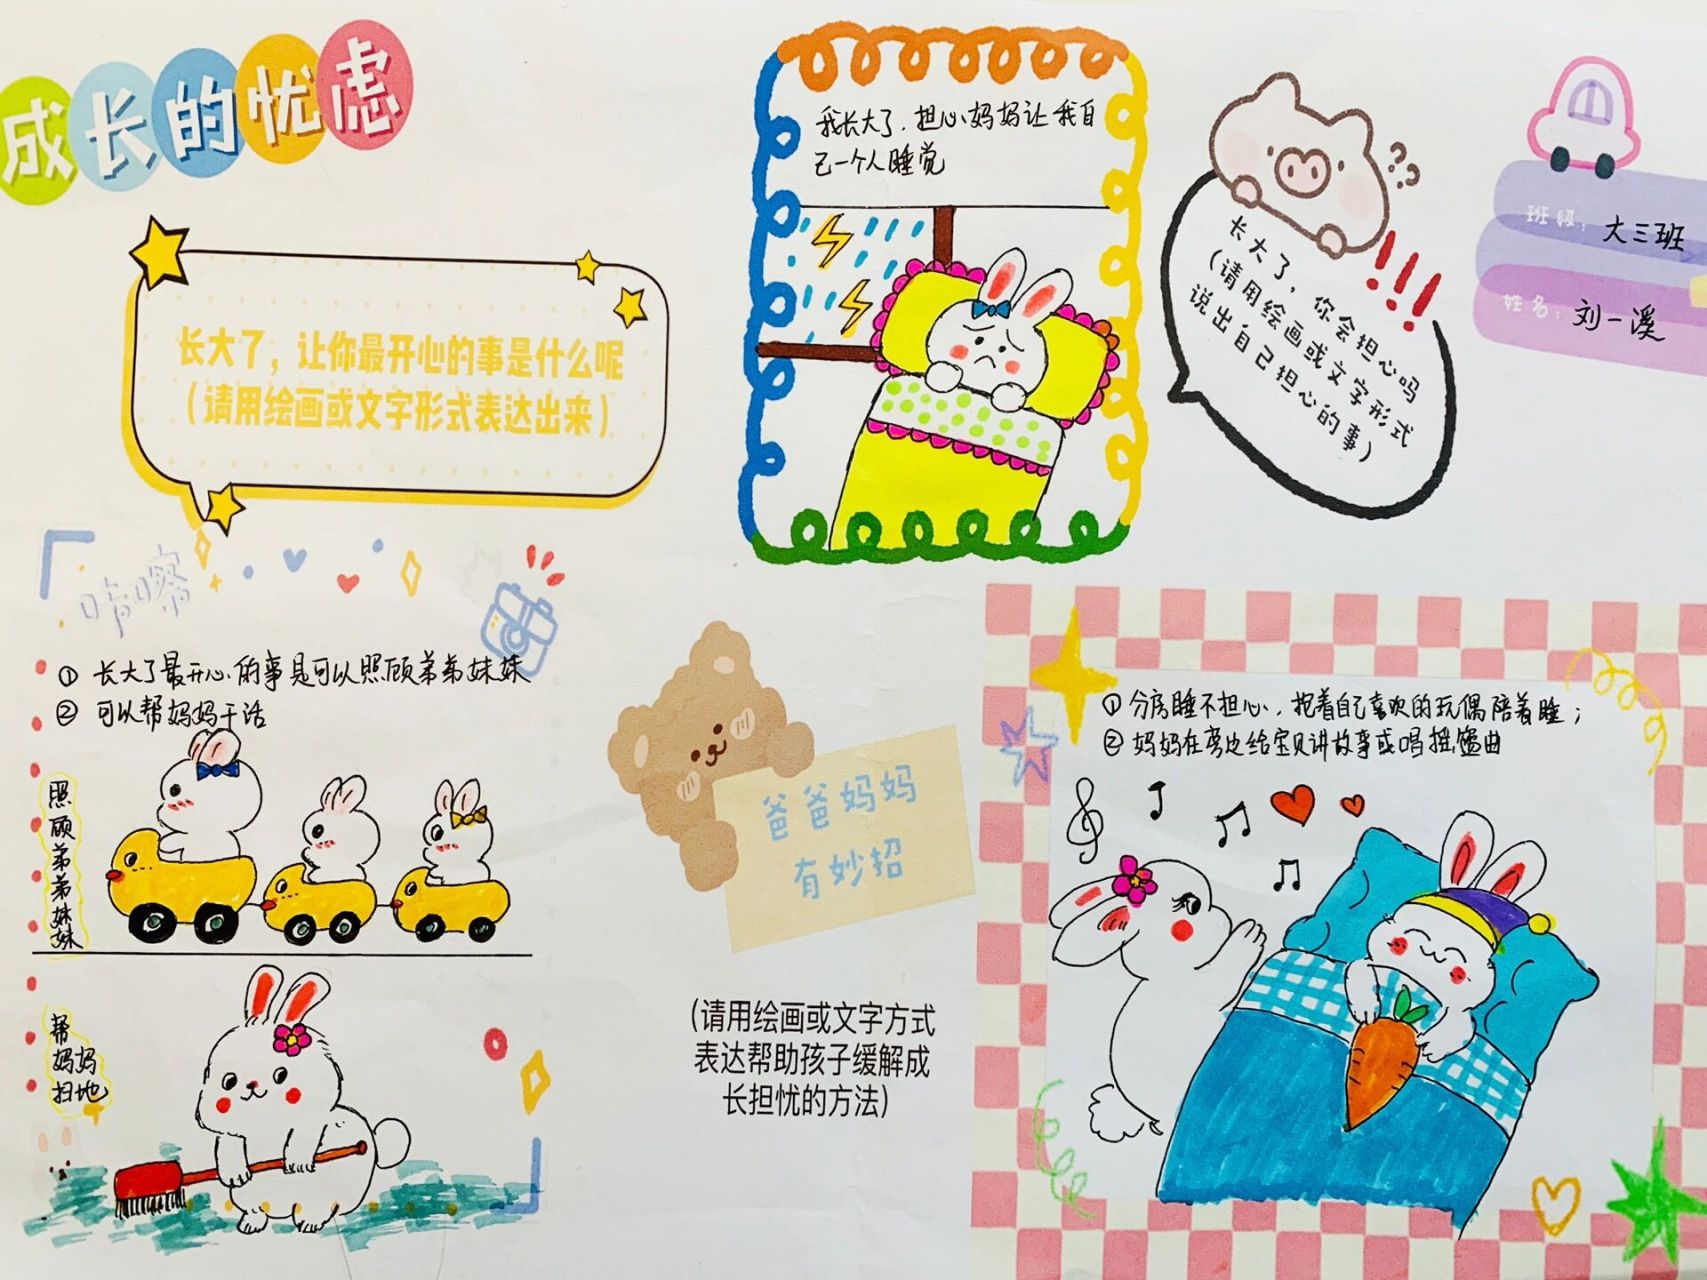 成长的忧虑
长大了，让你最开心的事是什么呢
（请用绘画或文字形式表达出来）
我长大了，担心妈妈让我自
己一个人睡觉
??
!!!
长大了，你会担心吗
（请用绘画或文字形式
说出自己担心的事）
班级：大三班
姓名：刘一溪
咔嚓
① 长大了最开心的事是可以照顾弟弟妹妹
② 可以帮妈妈干活
照顾弟弟妹妹
帮
妈妈
扫地
爸爸妈妈
有妙招
（请用绘画或文字方式
表达帮助孩子缓解成
长担忧的方法）
① 分房睡不担心，抱着自己喜欢的玩偶陪着睡；
② 妈妈在旁边给宝贝讲故事或唱摇篮曲